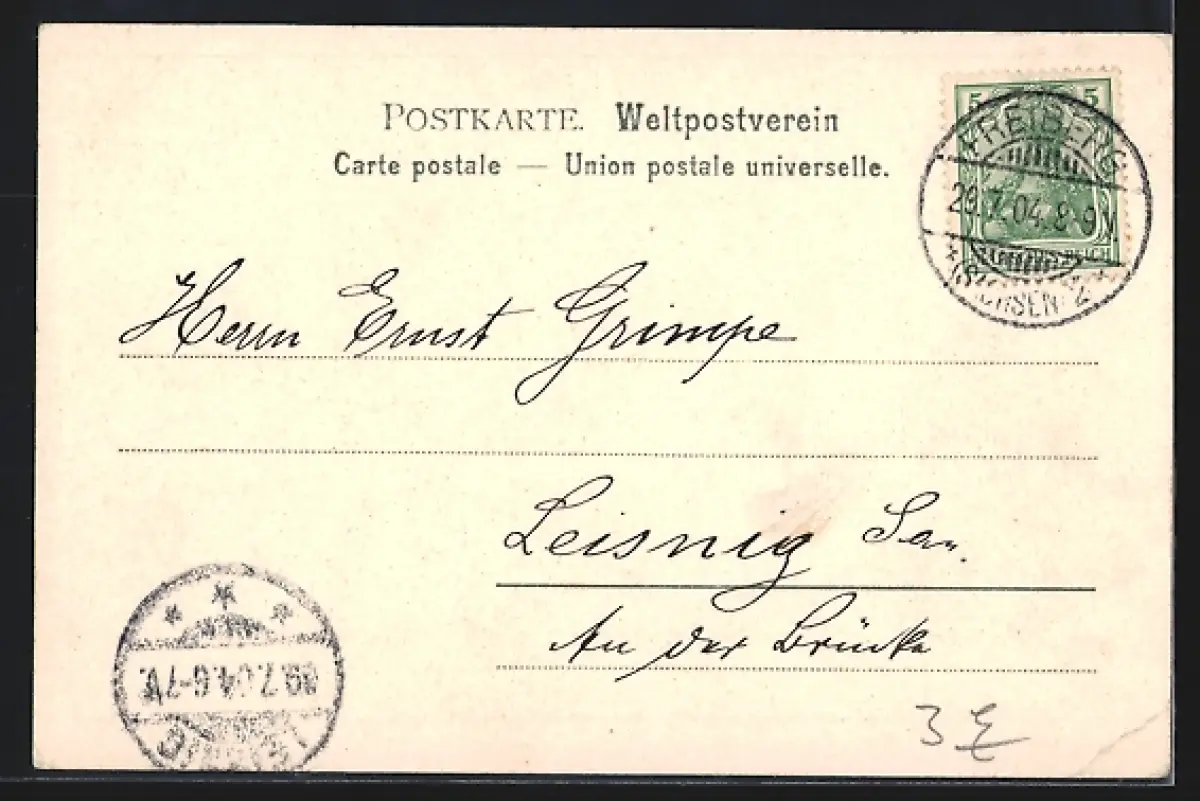 POSTKARTE. Weltpostverein
Carte postale — Union postale universelle.
5 5
FREIBERG
29.7.04. 8-9V
*(SACHSEN) 2*
REICH
Herrn Ernst Grimpe
Leisnig Sa.
An der Brücke
.7.04.6-7
3